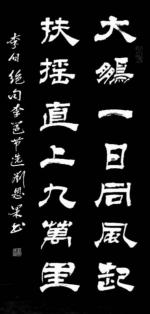 大鵬一日同風起
扶摇直上九萬里
李白絕句李邕节选劉恩军书